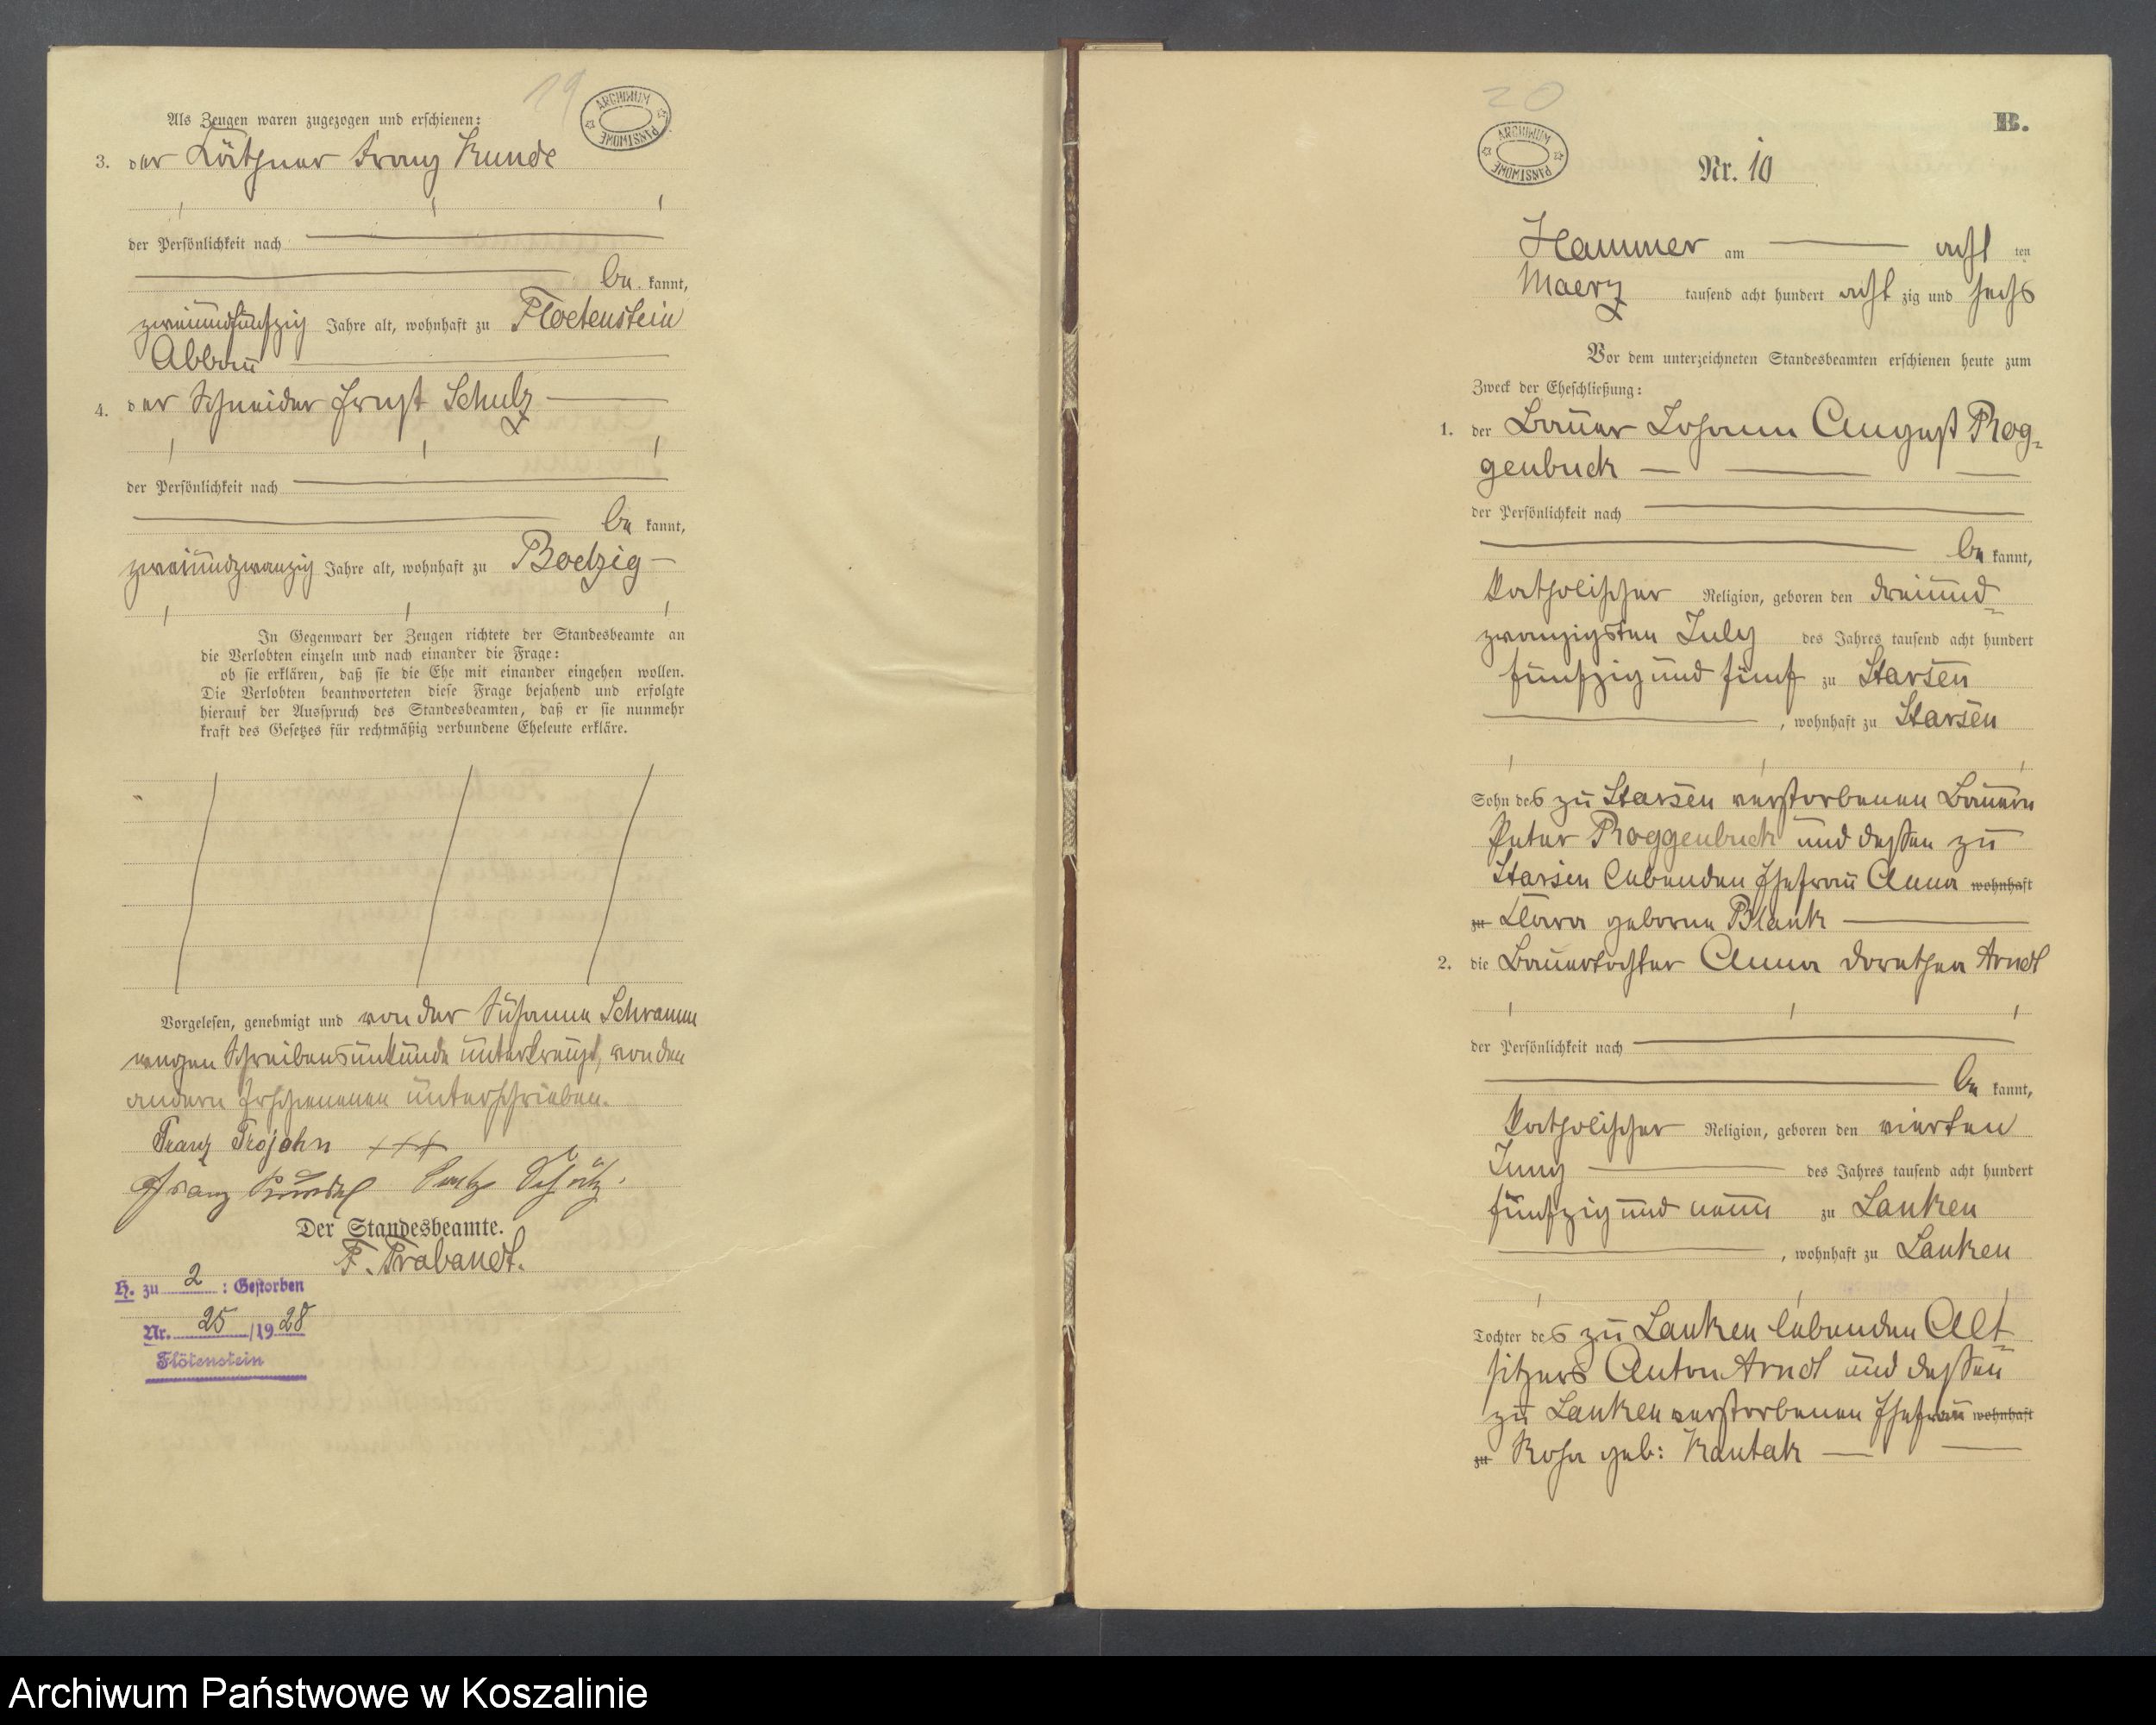 19
ARCHIWUM PAŃSTWOWE
Als Zeugen waren zugezogen und erschienen:
3. der Käthner Franz Kunde
der Persönlichkeit nach
be kannt,
zweiundfünfzig Jahre alt, wohnhaft zu Floetenstein
Abbau
4. der Schneider Ernst Schulz
der Persönlichkeit nach
be kannt,
zweiundzwanzig Jahre alt, wohnhaft zu Boelzig
In Gegenwart der Zeugen richtete der Standesbeamte an
die Verlobten einzeln und nach einander die Frage:
ob sie erklären, daß sie die Ehe mit einander eingehen wollen.
Die Verlobten beantworteten diese Frage bejahend und erfolgte
hierauf der Ausspruch des Standesbeamten, daß er sie nunmehr
kraft des Gesetzes für rechtmäßig verbundene Eheleute erkläre.
Vorgelesen, genehmigt und von der Susanna Schramm
wegen Schreibensunkunde unterkreuzt, von den
andern Erschienenen unterschrieben.
Franz Trojahn +++
Franz
Der Standesbeamte.
F. Trabandt.
H. zu 2 : Gestorben
Nr. 25 /1928
Flötenstein
20
B.
ARCHIWUM PAŃSTWOWE
Nr. 10
Hammer am acht ten
Maerz tausend acht hundert acht zig und sechs
Vor dem unterzeichneten Standesbeamten erschienen heute zum
Zweck der Eheschließung:
1. der Bauer Johann August Rog-
genbuck
der Persönlichkeit nach
be kannt,
katholischer Religion, geboren den dreiund-
zwanzigsten July des Jahres tausend acht hundert
fünfzig und fünf zu Starsen
, wohnhaft zu Starsen
Sohn des zu Starsen verstorbenen Bauern
Peter Roggenbuck und dessen zu
Starsen lebenden Ehefrau Anna wohnhaft
zu Clara geborne Blank
2. die Bauertochter Anna Dorothea Arndt
der Persönlichkeit nach
be kannt,
katholischer Religion, geboren den vierten
Juny des Jahres tausend acht hundert
fünfzig und neun zu Lanken
, wohnhaft zu Lanken
Tochter des zu Lanken lebenden Alt-
sitzers Anton Arndt und dessen
zu Lanken verstorbenen Ehefrau wohnhaft
zu Rosa geb: Kantak
Archiwum Państwowe w Koszalinie